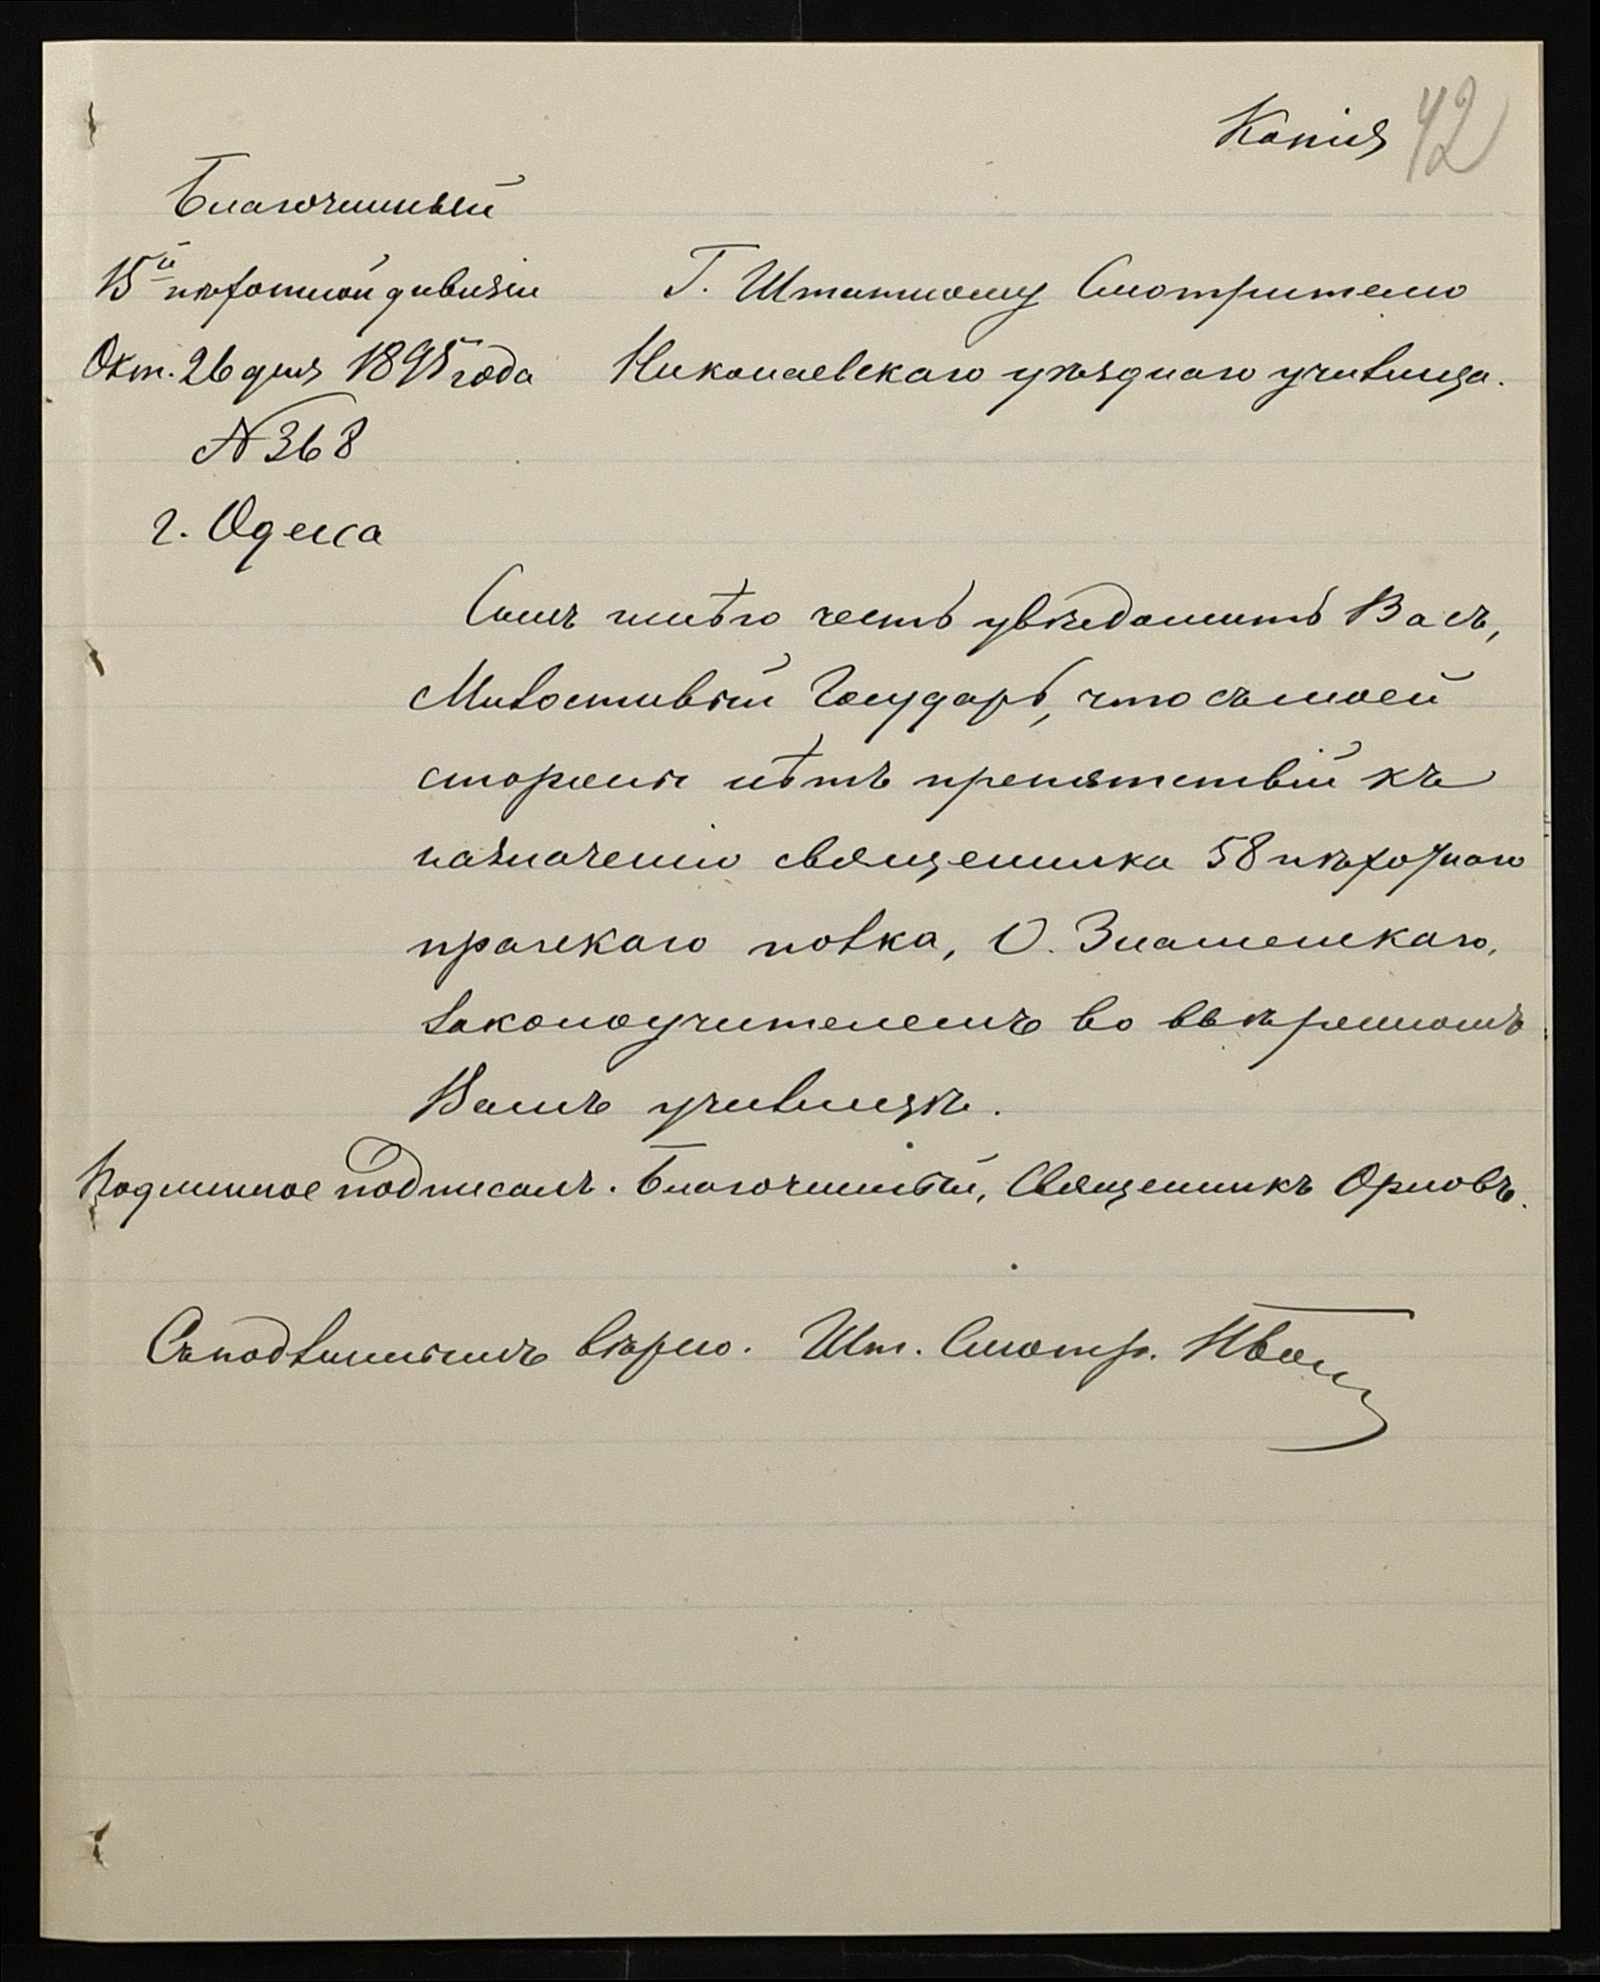 Копія 42
Благочинный
15й пѣхотной дивизіи
Окт. 26 дня 1895 года
№ 368
г. Одесса
Г. Штатному Смотрителю
Николаевскаго уѣзднаго училища.
Симъ имѣю честь увѣдомить Васъ,
Милостивый Государь, что съ моей
стороны нѣтъ препятствій къ
назначенію священника 58 пѣхотнаго
прагскаго полка, О. Знаменскаго,
законоучителемъ во ввѣренномъ
Вамъ училищѣ.
Подлинное подписалъ. Благочинный, Священникъ Орловъ.
Съ подлиннымъ вѣрно. Шт. Смотр.